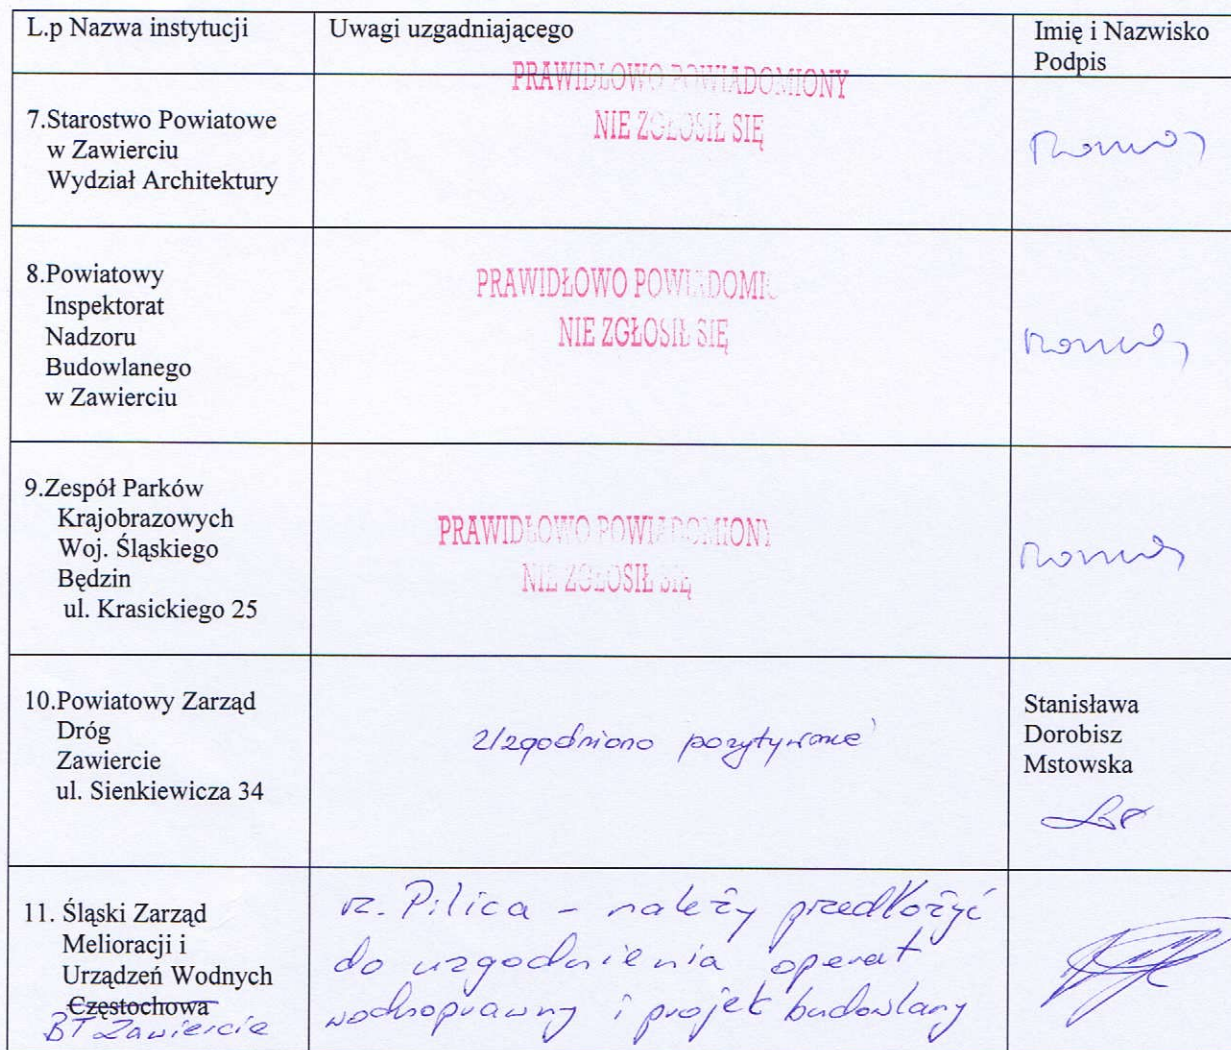 L.p Nazwa instytucji
Uwagi uzgadniającego
Imię i Nazwisko
Podpis
7.Starostwo Powiatowe
w Zawierciu
Wydział Architektury
PRAWIDŁOWO POWIADOMIONY
NIE ZGŁOSIŁ SIĘ
8.Powiatowy
Inspektorat
Nadzoru
Budowlanego
w Zawierciu
PRAWIDŁOWO POWIADOMI
NIE ZGŁOSIŁ SIĘ
9.Zespół Parków
Krajobrazowych
Woj. Śląskiego
Będzin
ul. Krasickiego 25
PRAWIDŁOWO POWIADOMIONY
NIE ZGŁOSIŁ SIĘ
10.Powiatowy Zarząd
Dróg
Zawiercie
ul. Sienkiewicza 34
Uzgodniono pozytywnie
Stanisława
Dorobisz
Mstowska
11. Śląski Zarząd
Melioracji i
Urządzeń Wodnych
Częstochowa
BT Zawiercie
rz. Pilica - należy przedłożyć
do uzgodnienia operat
wodnoprawny i projekt budowlany